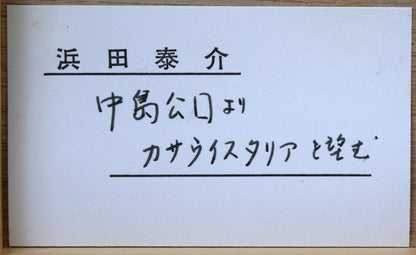 浜田泰介
中島公口より
カサウイスタリアと望む